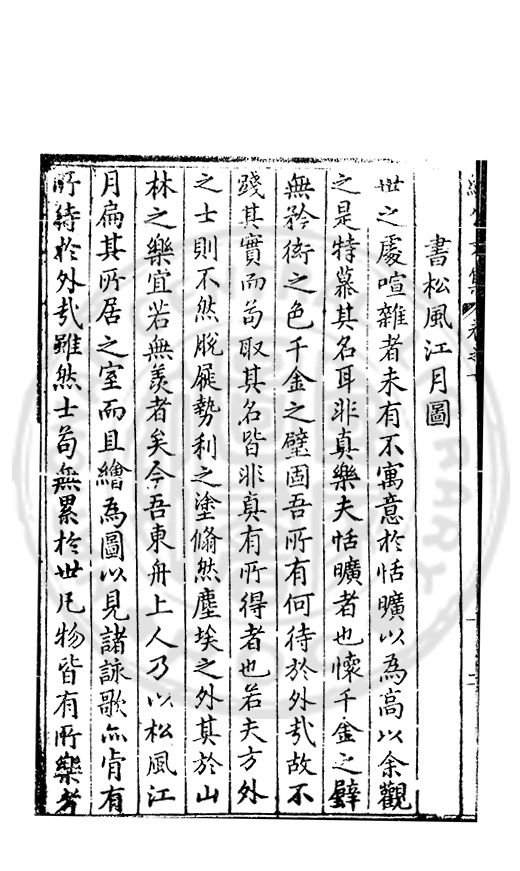 書松風江月圖
世之處喧雜者未有不寓意於恬曠以為高以余觀
之是特慕其名耳非真樂夫恬曠者也懷千金之璧
無矜衒之色千金之璧固吾所有何待於外㢤故不
踐其實而苟取其名皆非真有所得者也若夫方外
之士則不然脫屣勢利之塗翛然塵埃之外其於山
林之樂宜若無羨者矣今吾東舟上人乃以松風江
月扁其所居之室而且繪為圖以見諸詠歌亦肯有
所待於外㢤雖然士苟無累於世凡物皆有所樂考